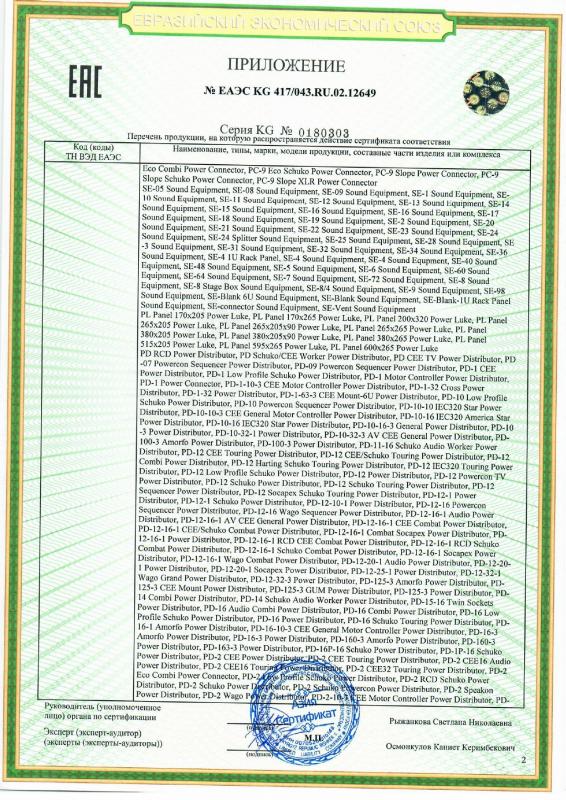 ЕВРАЗИЙСКИЙ ЭКОНОМИЧЕСКИЙ СОЮЗ
ЕАС
ПРИЛОЖЕНИЕ
№ ЕАЭС KG 417/043.RU.02.12649
Серия KG № 0180303
Перечень продукции, на которую распространяется действие сертификата соответствия
Код (коды)
ТН ВЭД ЕАЭС
Наименование, типы, марки, модели продукции, составные части изделия или комплекса
Eco Combi Power Connector, PC-9 Eco Schuko Power Connector, PC-9 Slope Power Connector, PC-9
Slope Schuko Power Connector, PC-9 Slope XLR Power Connector
SE-05 Sound Equipment, SE-08 Sound Equipment, SE-09 Sound Equipment, SE-1 Sound Equipment, SE-
10 Sound Equipment, SE-11 Sound Equipment, SE-12 Sound Equipment, SE-13 Sound Equipment, SE-14
Sound Equipment, SE-15 Sound Equipment, SE-16 Sound Equipment, SE-16 Sound Equipment, SE-17
Sound Equipment, SE-18 Sound Equipment, SE-19 Sound Equipment, SE-2 Sound Equipment, SE-20
Sound Equipment, SE-21 Sound Equipment, SE-22 Sound Equipment, SE-23 Sound Equipment, SE-24
Sound Equipment, SE-24 Splitter Sound Equipment, SE-25 Sound Equipment, SE-28 Sound Equipment, SE
-3 Sound Equipment, SE-31 Sound Equipment, SE-32 Sound Equipment, SE-34 Sound Equipment, SE-36
Sound Equipment, SE-4 1U Rack Panel, SE-4 Sound Equipment, SE-4 Sound Equipment, SE-40 Sound
Equipment, SE-48 Sound Equipment, SE-5 Sound Equipment, SE-6 Sound Equipment, SE-60 Sound
Equipment, SE-64 Sound Equipment, SE-7 Sound Equipment, SE-72 Sound Equipment, SE-8 Sound
Equipment, SE-8 Stage Box Sound Equipment, SE-8/4 Sound Equipment, SE-9 Sound Equipment, SE-98
Sound Equipment, SE-Blank 6U Sound Equipment, SE-Blank Sound Equipment, SE-Blank-1U Rack Panel
Sound Equipment, SE-connector Sound Equipment, SE-Vent Sound Equipment
PL Panel 170x205 Power Luke, PL Panel 170x265 Power Luke, PL Panel 200x320 Power Luke, PL Panel
265x205 Power Luke, PL Panel 265x205x90 Power Luke, PL Panel 265x265 Power Luke, PL Panel
380x205 Power Luke, PL Panel 380x205x90 Power Luke, PL Panel 380x265 Power Luke, PL Panel
515x205 Power Luke, PL Panel 595x265 Power Luke, PL Panel 600x265 Power Luke
PD RCD Power Distributor, PD Schuko/CEE Worker Power Distributor, PD CEE TV Power Distributor, PD
-07 Powercon Sequencer Power Distributor, PD-09 Powercon Sequencer Power Distributor, PD-1 CEE
Power Distributor, PD-1 Low Profile Schuko Power Distributor, PD-1 Motor Controller Power Distributor,
PD-1 Power Connector, PD-1-10-3 CEE Motor Controller Power Distributor, PD-1-32 Cross Power
Distributor, PD-1-32 Power Distributor, PD-1-63-3 CEE Mount-6U Power Distributor, PD-10 Low Profile
Schuko Power Distributor, PD-10 Powercon Sequencer Power Distributor, PD-10-10 IEC320 Star Power
Distributor, PD-10-10-3 CEE General Motor Controller Power Distributor, PD-10-16 IEC320 America Star
Power Distributor, PD-10-16 IEC320 Star Power Distributor, PD-10-16-3 General Power Distributor, PD-10
-3 Power Distributor, PD-10-32-1 Power Distributor, PD-10-32-3 AV CEE General Power Distributor, PD-
100-3 Amorfo Power Distributor, PD-100-3 Power Distributor, PD-11-16 Schuko Audio Worker Power
Distributor, PD-12 CEE Touring Power Distributor, PD-12 CEE/Schuko Touring Power Distributor, PD-12
Combi Power Distributor, PD-12 Harting Schuko Touring Power Distributor, PD-12 IEC320 Touring Power
Distributor, PD-12 Low Profile Schuko Power Distributor, PD-12 Power Distributor, PD-12 Powercon TV
Power Distributor, PD-12 Schuko Power Distributor, PD-12 Schuko Touring Power Distributor, PD-12
Sequencer Power Distributor, PD-12 Socapex Schuko Touring Power Distributor, PD-12-1 Power
Distributor, PD-12-1 Schuko Power Distributor, PD-12-10-1 Power Distributor, PD-12-16 Powercon
Sequencer Power Distributor, PD-12-16 Wago Sequencer Power Distributor, PD-12-16-1 Audio Power
Distributor, PD-12-16-1 AV CEE General Power Distributor, PD-12-16-1 CEE Combat Power Distributor,
PD-12-16-1 CEE/Schuko Combat Power Distributor, PD-12-16-1 Combat Socapex Power Distributor, PD-
12-16-1 Power Distributor, PD-12-16-1 RCD CEE Combat Power Distributor, PD-12-16-1 RCD Schuko
Combat Power Distributor, PD-12-16-1 Schuko Combat Power Distributor, PD-12-16-1 Socapex Power
Distributor, PD-12-16-1 Wago Combat Power Distributor, PD-12-20-1 Audio Power Distributor, PD-12-20-
1 Power Distributor, PD-12-20-1 Socapex Power Distributor, PD-12-25-1 Power Distributor, PD-12-32-1
Wago Grand Power Distributor, PD-12-32-3 Power Distributor, PD-125-3 Amorfo Power Distributor, PD-
125-3 CEE Mount Power Distributor, PD-125-3 GUM Power Distributor, PD-125-3 Power Distributor, PD-
14 Combi Power Distributor, PD-14 Schuko Audio Worker Power Distributor, PD-15-16 Twin Sockets
Power Distributor, PD-16 Audio Combi Power Distributor, PD-16 Combi Power Distributor, PD-16 Low
Profile Schuko Power Distributor, PD-16 Power Distributor, PD-16 Schuko Power Distributor, PD-
16-1 Amorfo Power Distributor, PD-16-10-3 CEE General Motor Controller Power Distributor, PD-16-3
Amorfo Power Distributor, PD-16-3 Power Distributor, PD-160-3 Amorfo Power Distributor, PD-160-3
Power Distributor, PD-163-3 Power Distributor, PD-16P-16 Schuko Power Distributor, PD-1P-16 Schuko
Power Distributor, PD-2 CEE Power Distributor, PD-2 CEE Touring Power Distributor, PD-2 CEE16 Audio
Power Distributor, PD-2 CEE16 Touring Power Distributor, PD-2 CEE32 Touring Power Distributor, PD-2
Eco Combi Power Connector, PD-2 Low Profile Schuko Power Distributor, PD-2 RCD Schuko Power
Distributor, PD-2 Schuko Power Distributor, PD-2 Schuko Powercon Power Distributor, PD-2 Speakon
Power Distributor, PD-2 Wago Power Distributor, PD-2-10-3 CEE Motor Controller Power Distributor, PD-
Руководитель (уполномоченное
лицо) органа по сертификации
Рыжанкова Светлана Николаевна
Эксперт (эксперт-аудитор)
(эксперты (эксперты-аудиторы))
Осмонкулов Каниет Керимбекович
(подпись)
М.П.
Азия
Сертификат
2